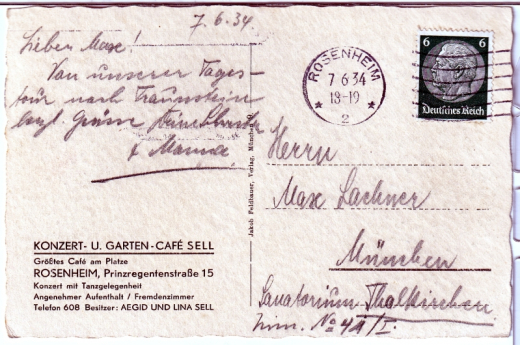 7.6.34.
Lieber Max!
Von unserer Tages-
tour nach Traunstein
Grüsse
& Mama.
KONZERT- U. GARTEN-CAFÉ SELL
Größtes Café am Platze
ROSENHEIM, Prinzregentenstraße 15
Konzert mit Tanzgelegenheit
Angenehmer Aufenthalt / Fremdenzimmer
Telefon 608 Besitzer: AEGID UND LINA SELL
Jakob Feldbauer, Verlag, München
ROSENHEIM
7 6 34
18-19
2
6 6
Deutsches Reich
Herrn
Max Lachner
München
Sanatorium Thalkirchen
Zim. No 41/I.